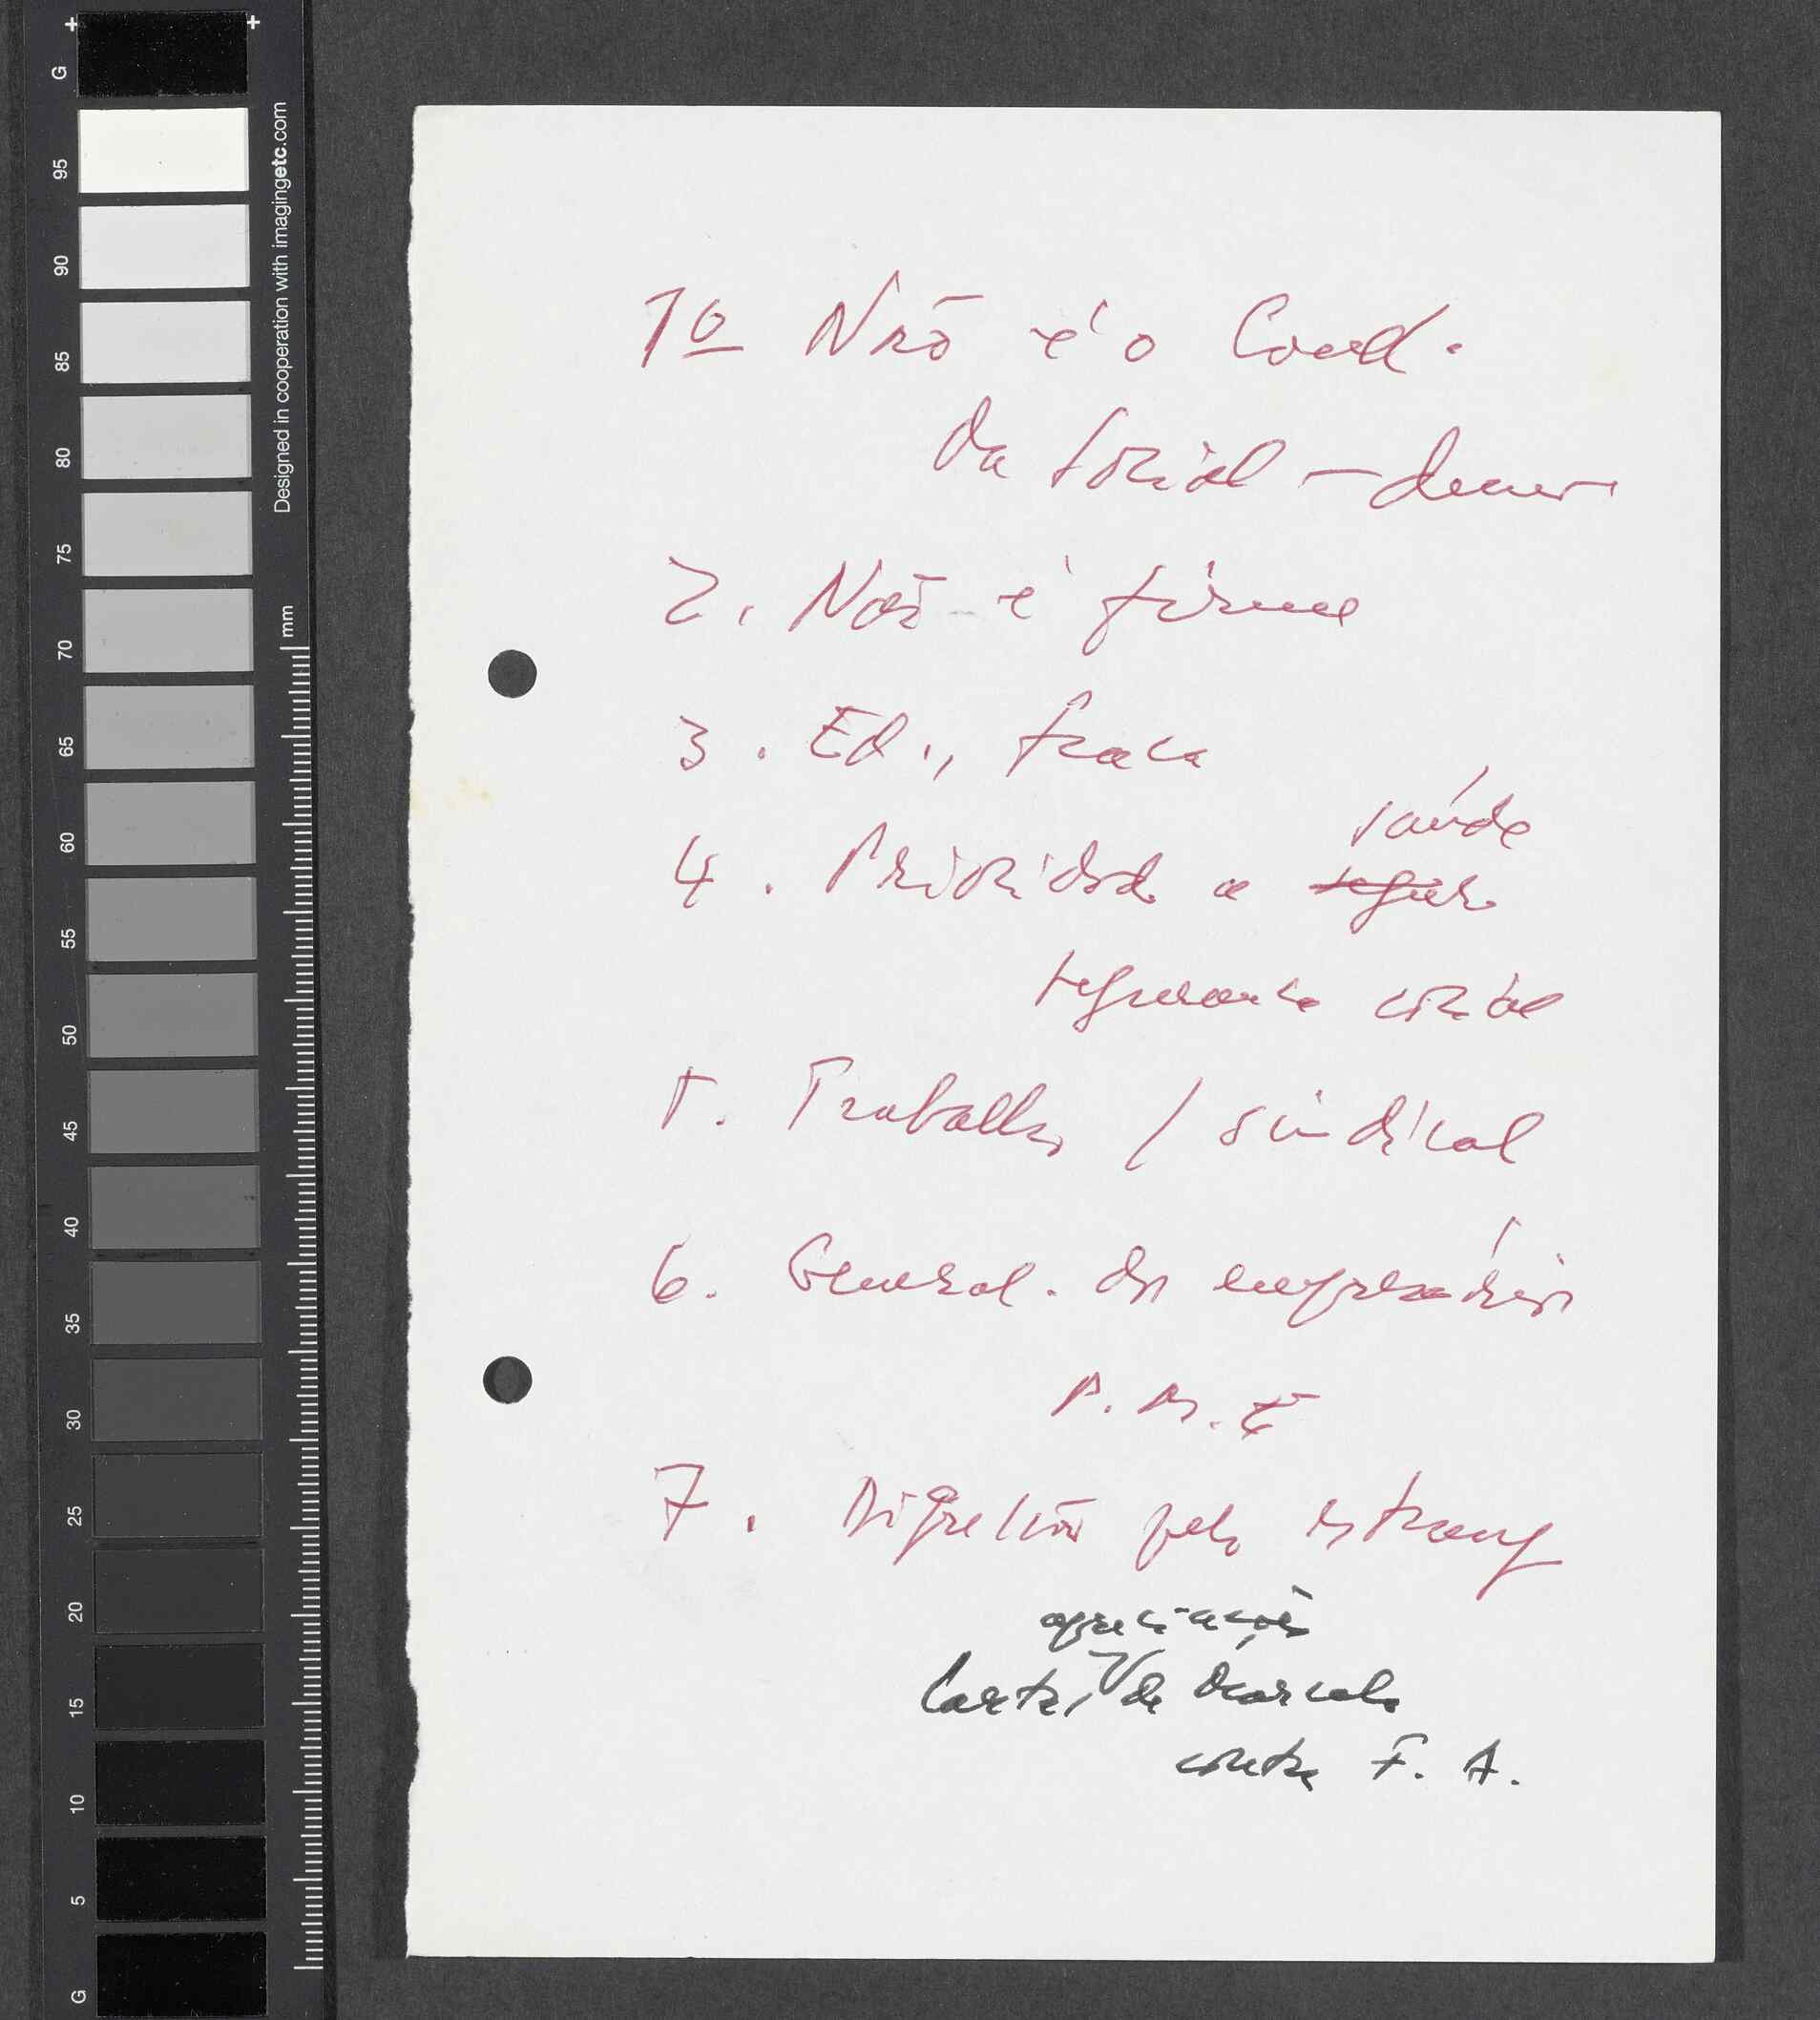 G
95
90
85
80
75
70
65
60
55
50
45
40
35
30
25
20
15
10
5
G
Designed in cooperation with imagingetc.com
mm
1o Não é o Cand.
da Social - demo
2. Não é firme
3. Ed., fraca
saúde
4. Prioridade a segur
segurança social
5. Trabalho / sindical
6. General. dos empresários
P. M. E
7. Digressão pelo estrang
apreciações
Carta, de
contra F. A.